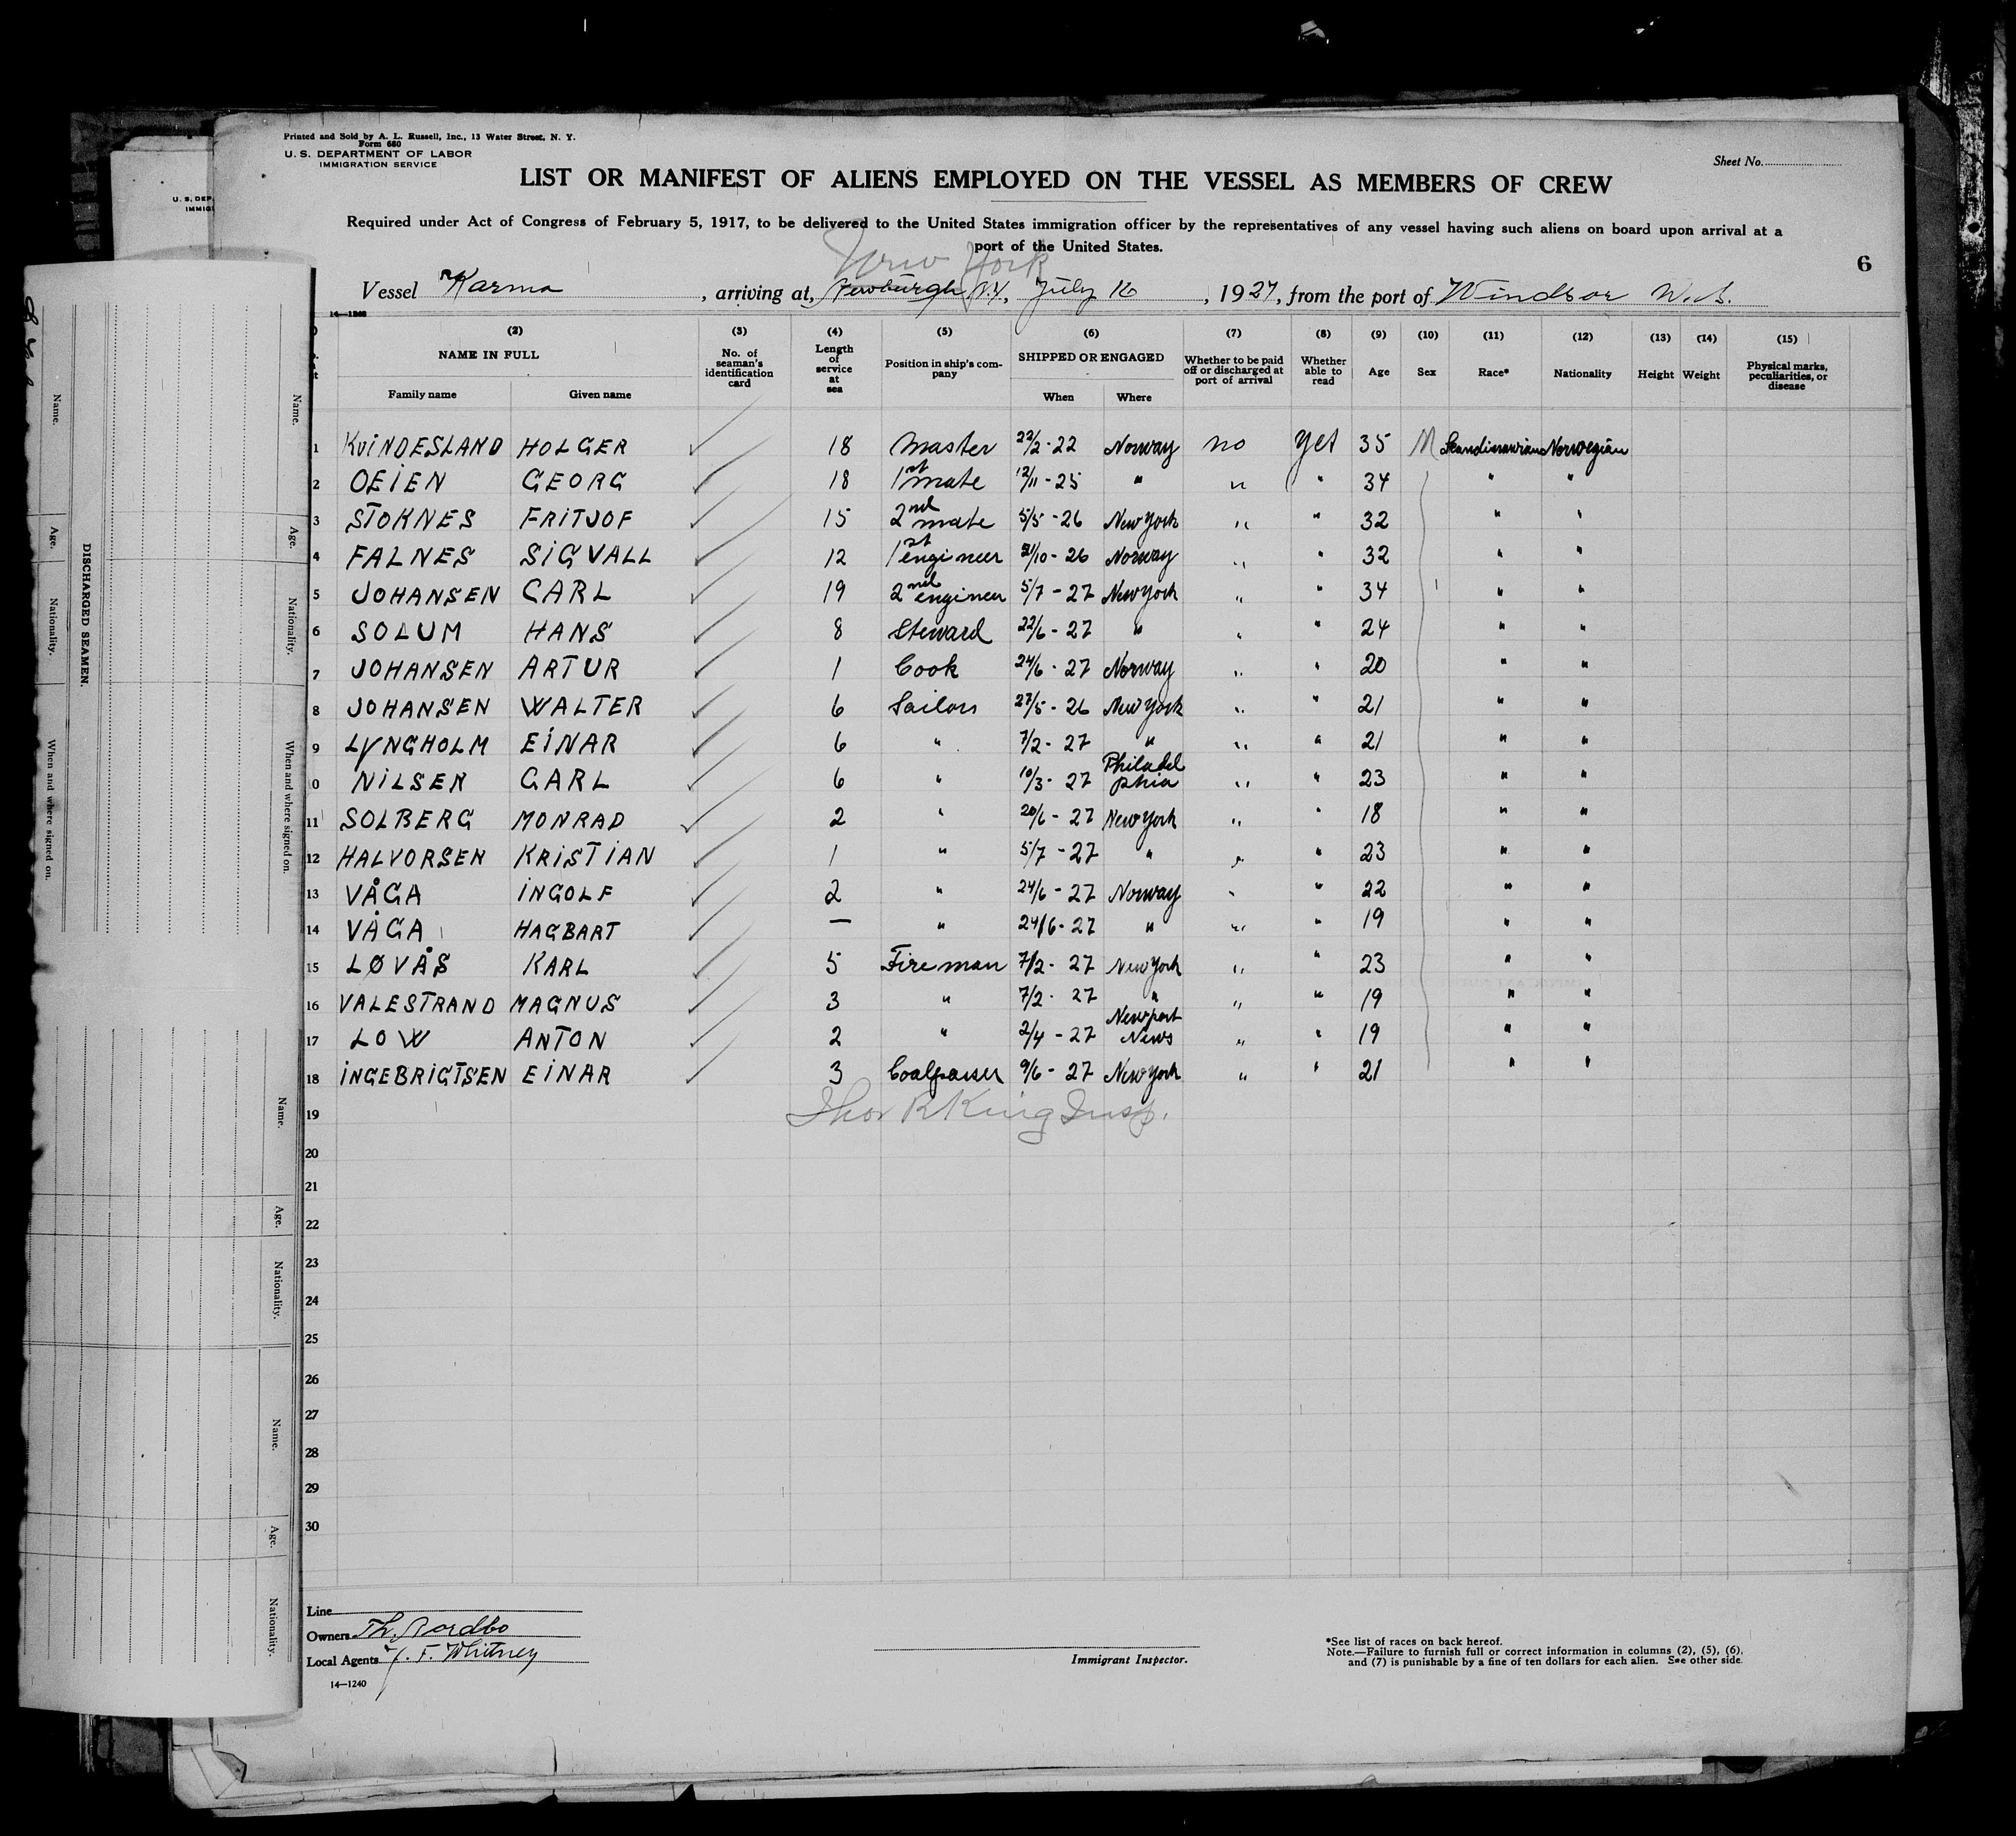 Printed and Sold by A. L. Russell, Inc., 13 Water Street, N. Y.
Form 680
U. S. DEPARTMENT OF LABOR
IMMIGRATION SERVICE
Sheet No.
LIST OR MANIFEST OF ALIENS EMPLOYED ON THE VESSEL AS MEMBERS OF CREW
Required under Act of Congress of February 5, 1917, to be delivered to the United States immigration officer by the representatives of any vessel having such aliens on board upon arrival at a
port of the United States.
6
New York
Vessel Karma, arriving at, Newburgh N.Y., July 16, 1927, from the port of Windsor N.S.
(2) (3) (4) (5) (6) (7) (8) (9) (10) (11) (12) (13) (14) (15)
NAME IN FULL No. of seaman's identification card Length of service at sea Position in ship's company SHIPPED OR ENGAGED Whether to be paid off or discharged at port of arrival Whether able to read Age Sex Race* Nationality Height Weight Physical marks, peculiarities, or disease
Family name Given name When Where
1 KViNDESLAND HOLGER 18 Master 22/2-22 Norway no yes 35 M Scandinavian Norwegian
2 OEiEN GEORG 18 1st mate 12/11-25 " " " 34 " "
3 STOKNES FRiTJOF 15 2nd mate 5/5-26 New York " " 32 " "
4 FALNES SiGVALL 12 1st engineer 21/10-26 Norway " " 32 " "
5 JOHANSEN CARL 19 2nd engineer 5/7-27 New York " " 34 " "
6 SOLUM HANS 8 Steward 22/6-27 " " " 24 " "
7 JOHANSEN ARTUR 1 Cook 24/6-27 Norway " " 20 " "
8 JOHANSEN WALTER 6 Sailors 27/5-26 New York " " 21 " "
9 LYNGHOLM EiNAR 6 " 7/2-27 " " " 21 " "
0 NiLSEN CARL 6 " 10/3-27 Philadelphia " " 23 " "
11 SOLBERG MONRAD 2 " 20/6-27 New York " " 18 " "
12 HALVORSEN KRiSTiAN 1 " 5/7-27 " " " 23 " "
13 VÅGA iNGOLF 2 " 24/6-27 Norway " " 22 " "
14 VÅGA HAGBART — " 24/6-27 " " " 19 " "
15 LØVÅS KARL 5 Fireman 7/2-27 New York " " 23 " "
16 VALESTRAND MAGNUS 3 " 7/2-27 " " " 19 " "
17 LOW ANTON 2 " 2/4-27 Newport News " " 19 " "
18 iNGEBRiGTSEN EiNAR 3 Coalpasser 9/6-27 New York " " 21 " "
19 Thos R King Insp.
20
21
22
23
24
25
26
27
28
29
30
Line
Owners Th.
Local Agents F. Whitney
14—1240
Immigrant Inspector.
*See list of races on back hereof.
Note.—Failure to furnish full or correct information in columns (2), (5), (6),
and (7) is punishable by a fine of ten dollars for each alien. See other side.
DISCHARGED SEAMEN.
Name. Age. Nationality. When and where signed on.
Name. Age. Nationality. When and where signed on.
Name. Age. Nationality.
Name. Age. Nationality.